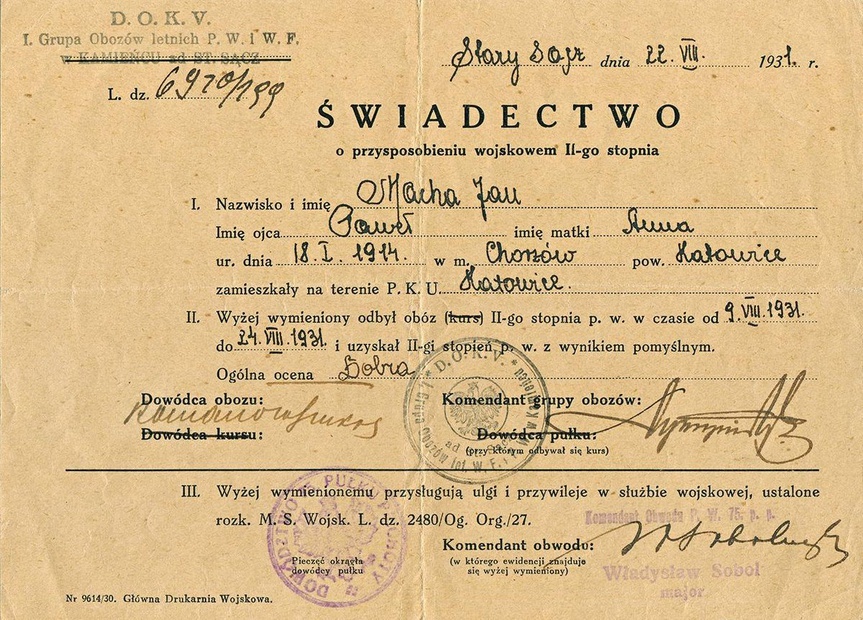 D. O. K. V.
I. Grupa Obozów letnich P. W. i W. F.
w KAMIEŃCU ad ST. SĄCZ
Stary Sącz dnia 22. VIII. 1931. r.
L. dz. 6920/199
ŚWIADECTWO
o przysposobieniu wojskowem II-go stopnia
I. Nazwisko i imię Macha Jan
Imię ojca Paweł imię matki Anna
ur. dnia 18. I. 1914. w m. Chorzów pow. Katowice
zamieszkały na terenie P. K. U. Katowice.
II. Wyżej wymieniony odbył obóz (kurs) II-go stopnia p. w. w czasie od 9. VIII. 1931.
do 24. VIII. 1931. i uzyskał II-gi stopień p. w. z wynikiem pomyślnym.
Ogólna ocena Dobra
Dowódca obozu: Komendant grupy obozów:
Dowódca kursu: Dowódca pułku:
(przy którym odbywał się kurs)
D. O. K. V.
I. Grupa Obozów let. W. F. i P. W.
III. Wyżej wymienionemu przysługują ulgi i przywileje w służbie wojskowej, ustalone
rozk. M. S. Wojsk. L. dz. 2480/Og. Org./27.
Komendant Obwodu P. W. 75. p. p.
Komendant obwodu:
(w którego ewidencji znajduje
się wyżej wymieniony)
Władysław Soboł
major
DOWÓDZTWO PUŁKU PIECHOTY
Pieczęć okrągła
dowódcy pułku
Nr 9614/30. Główna Drukarnia Wojskowa.